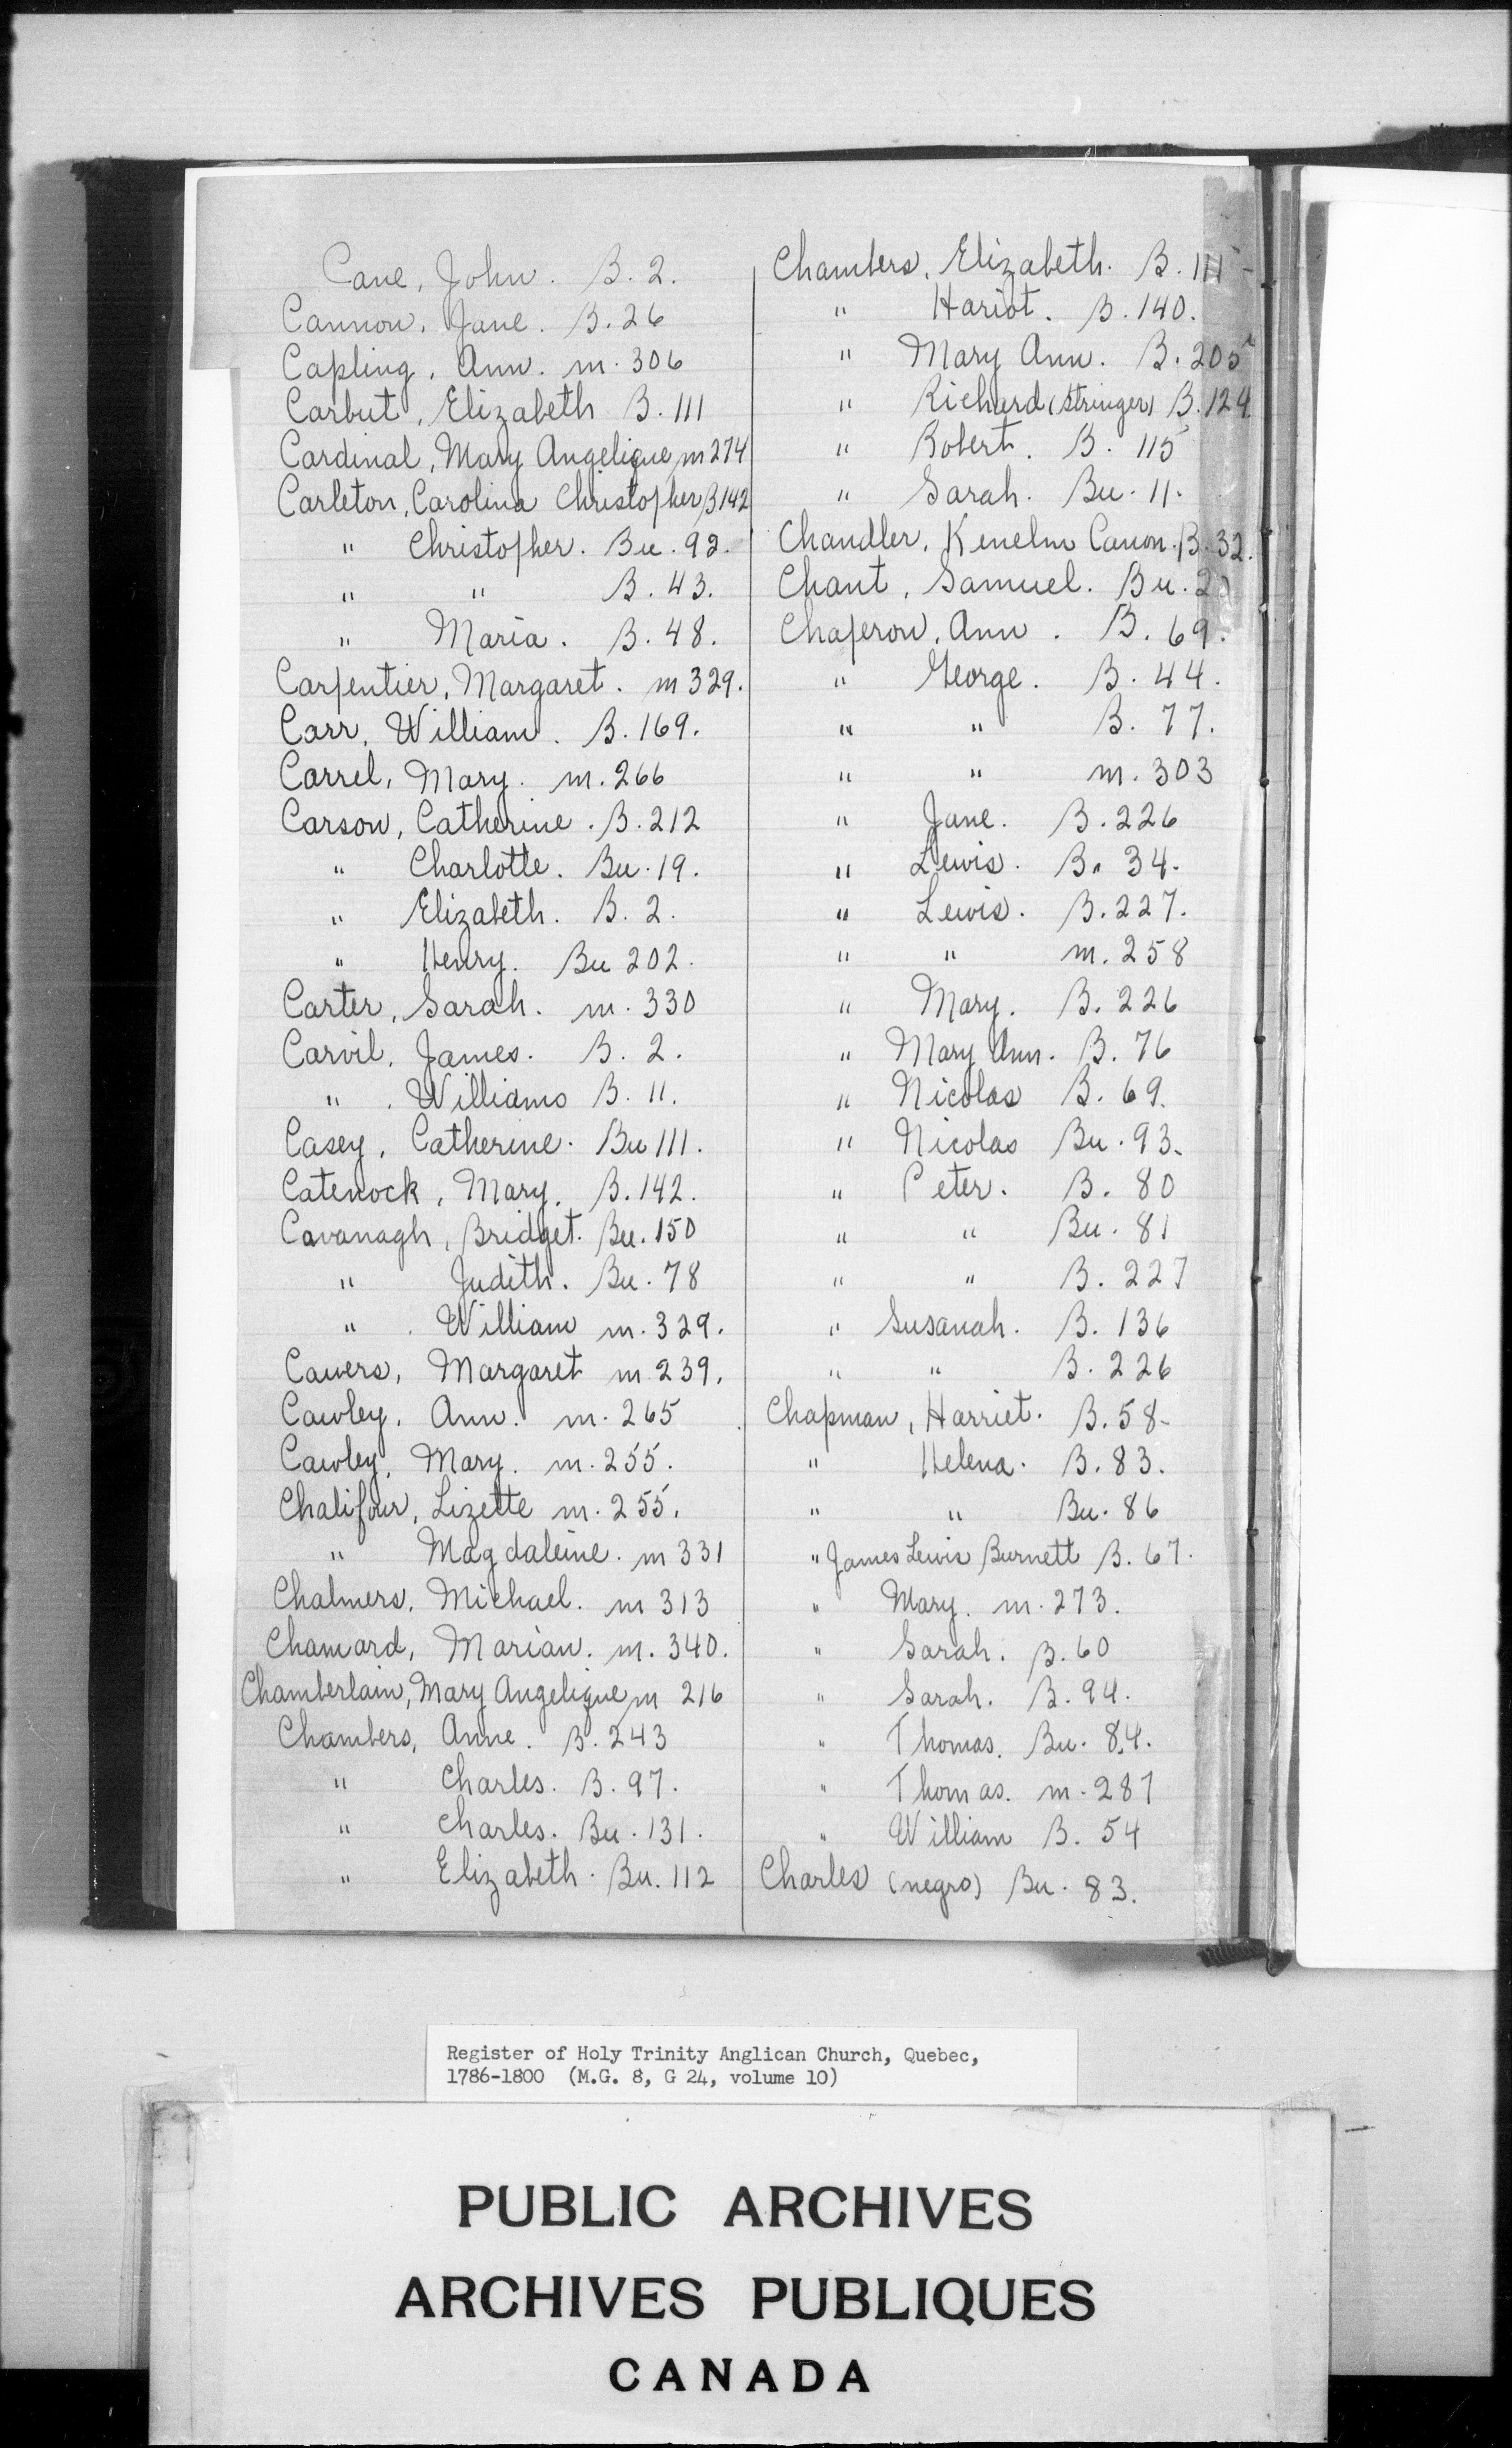 Cane, John. B. 2.
Cannon, Jane. B. 26
Capling, Ann. m. 306
Carbut, Elizabeth B. 111
Cardinal, Mary Angelique, m 274
Carleton, Carolina Christopher B 142
" Christopher. Bu. 92.
" " B. 43.
" Maria. B. 48.
Carpentier, Margaret. m 329.
Carr, William. B. 169.
Carrel, Mary. m. 266
Carson, Catherine. B. 212
" Charlotte. Bu. 19.
" Elizabeth. B. 2.
" Henry. Bu 202.
Carter, Sarah. m. 330
Carvil, James. B. 2.
" Williams B. 11.
Casey, Catherine. Bu 111.
Catenock, Mary. B. 142.
Cavanagh, Bridget. Bu. 150
" Judith. Bu. 78
" William m. 329.
Cawers, Margaret m 239.
Cawley, Ann. m. 265
Cawley, Mary. m. 255.
Chalifour, Lizette m. 255.
" Magdaleine. m 331
Chalmers, Michael. m 313
Chamard, Marian. m. 340.
Chamberlain, Mary Angelique m 216
Chambers, Anne. B. 243
" Charles. B. 97.
" Charles. Bu. 131.
" Elizabeth. Bu. 112
Chambers, Elizabeth. B. 111
" Hariot. B. 140.
" Mary Ann. B. 205
" Richard (Stringer) B. 124
" Robert. B. 115
" Sarah. Bu. 11.
Chandler, Kenelm Canon. B. 32.
Chant, Samuel. Bu.
Chaperon, Ann. B. 69.
" George. B. 44.
" " B. 77.
" " m. 303
" Jane. B. 226
" Lewis. B. 34.
" Lewis. B. 227.
" " m. 258
" Mary. B. 226
" Mary Ann. B. 76
" Nicolas B. 69.
" Nicolas Bu. 93.
" Peter. B. 80
" " Bu. 81
" " B. 227
" Susanah. B. 136
" " B. 226
Chapman, Harriet. B. 58
" Helena. B. 83.
" " Bu. 86
" James Lewis Burnett B. 67.
" Mary. m. 273.
" Sarah. B. 60
" Sarah. B. 94.
" Thomas. Bu. 84.
" Thomas. m. 287
" William B. 54
Charles (negro) Bu. 83.
Register of Holy Trinity Anglican Church, Quebec,
1786-1800 (M.G. 8, G 24, volume 10)
PUBLIC ARCHIVES
ARCHIVES PUBLIQUES
CANADA